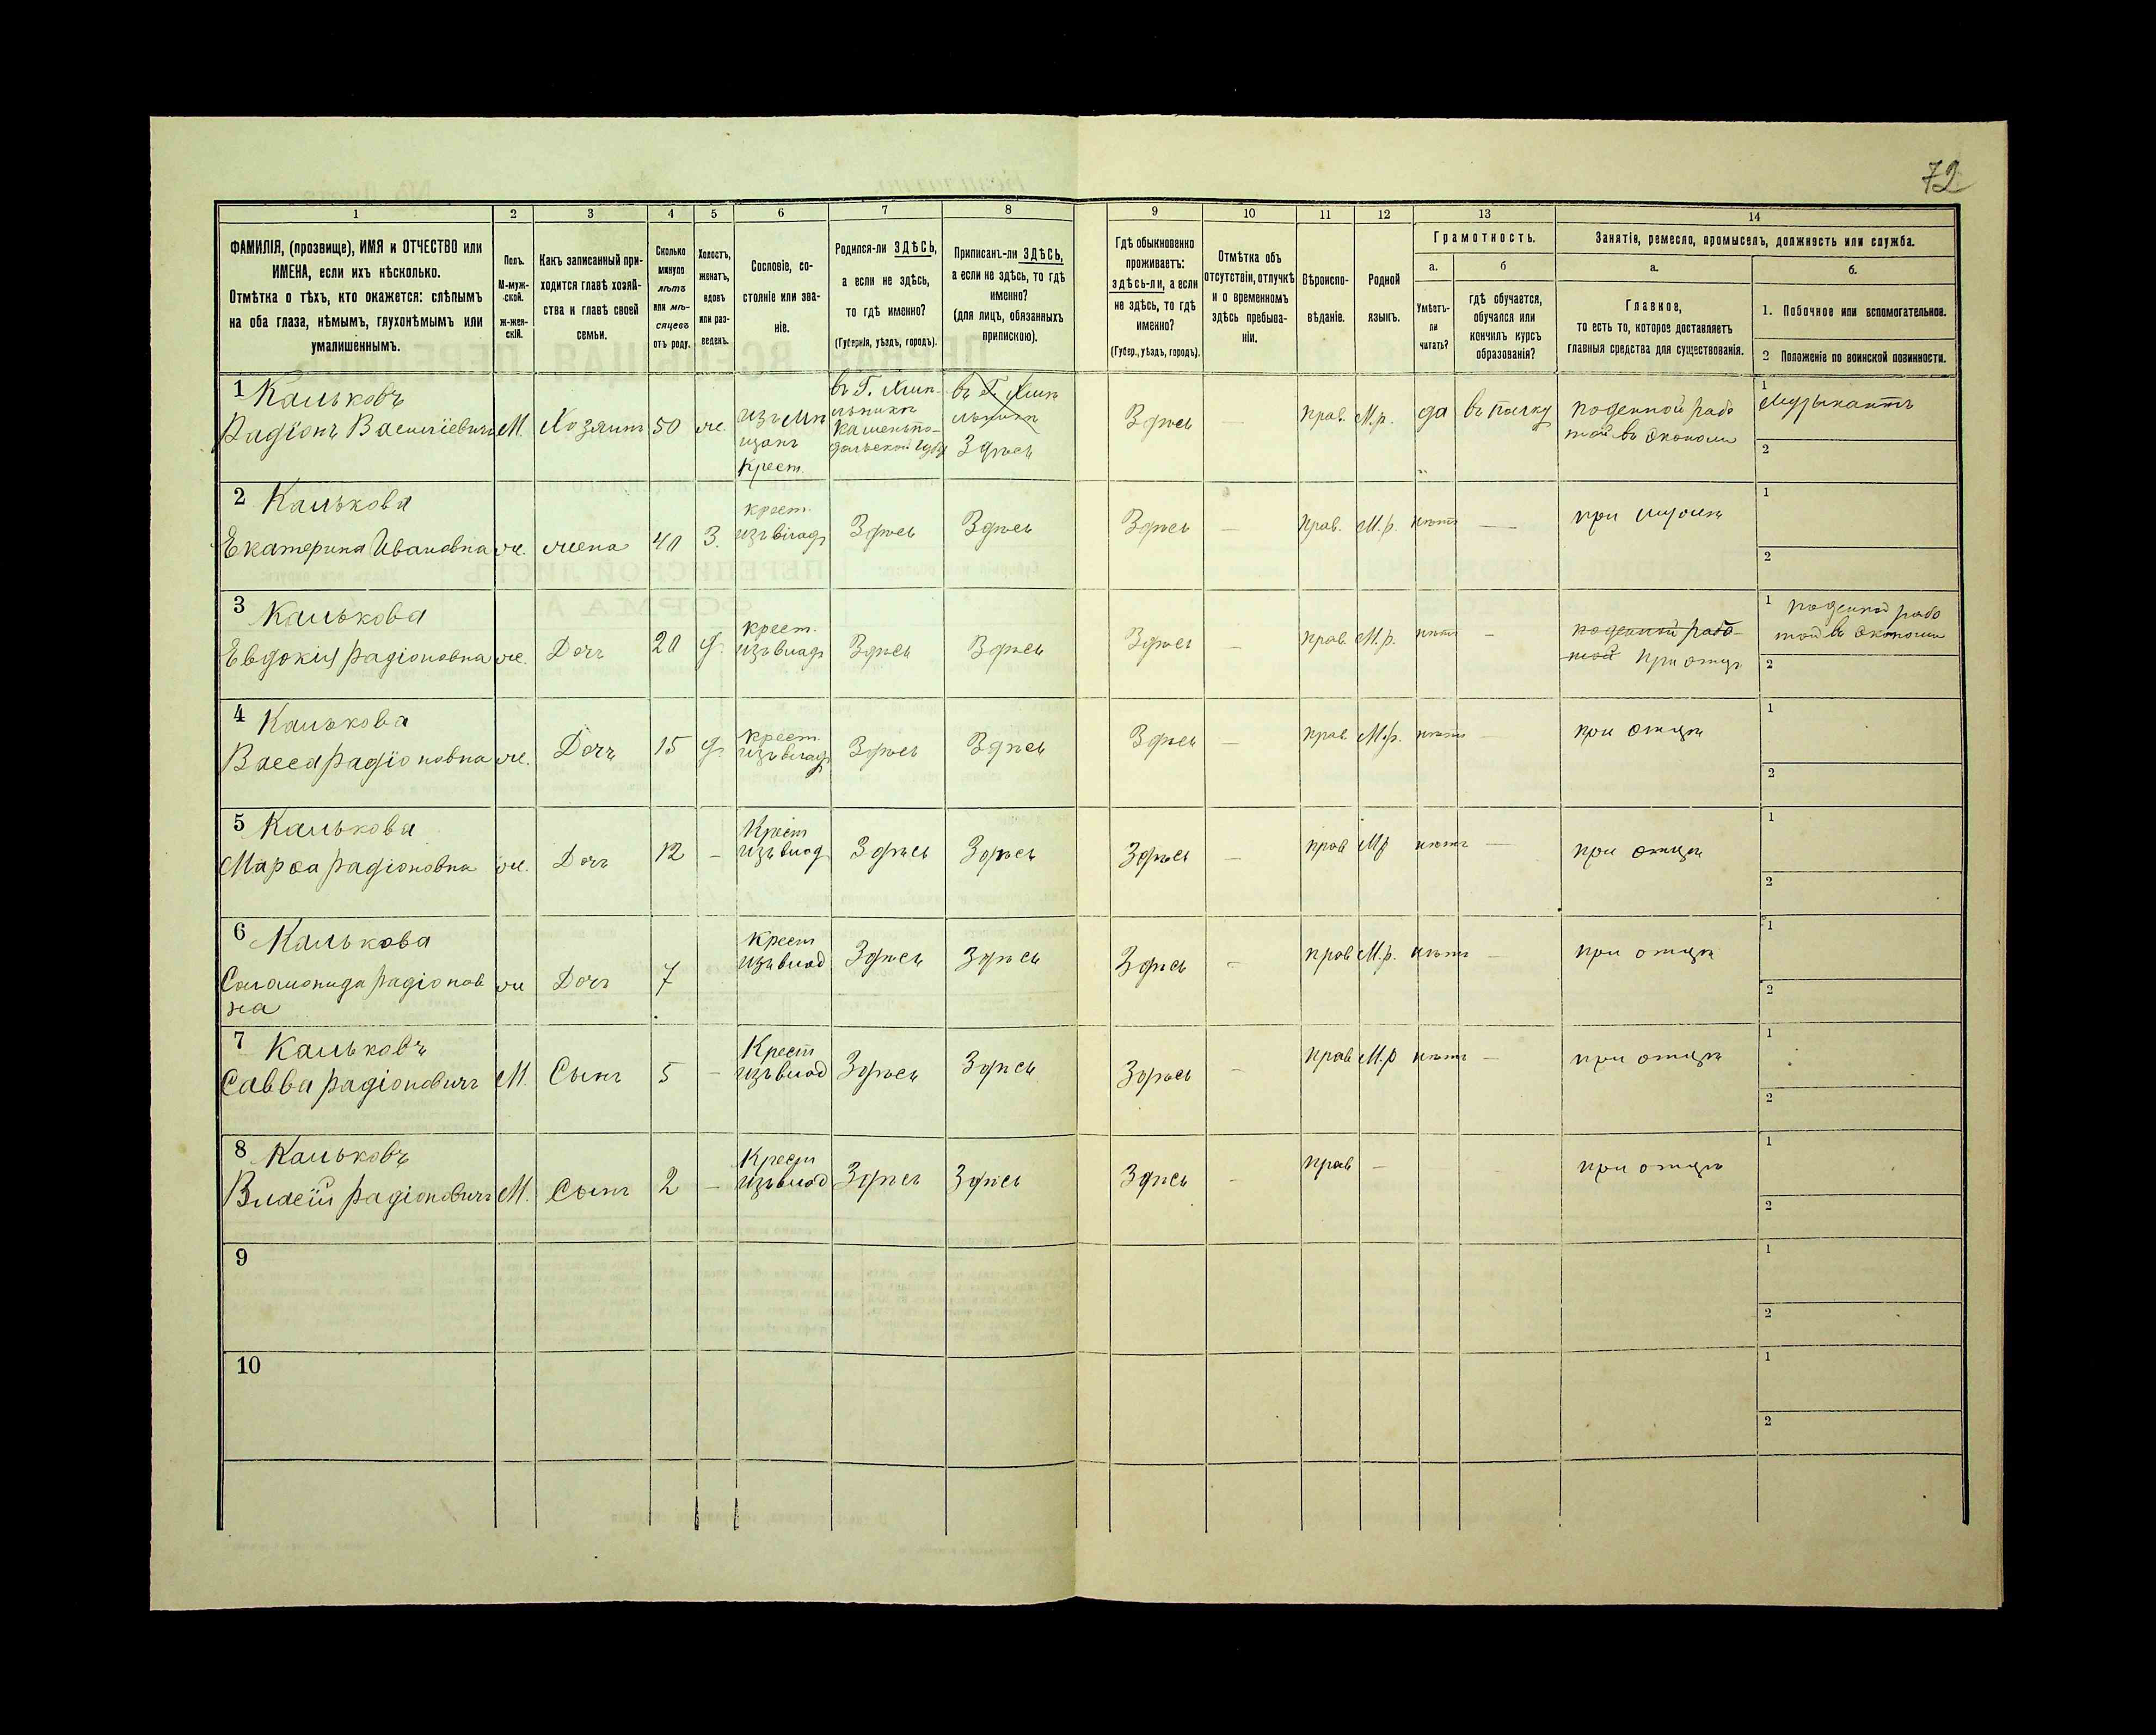 72
1
2
3
4
5
6
7
8
9
10
11
12
13
14
ФАМИЛІЯ, (прозвище), ИМЯ и ОТЧЕСТВО или
ИМЕНА, если ихъ нѣсколько.
Отмѣтка о тѣхъ, кто окажется: слѣпымъ
на оба глаза, нѣмымъ, глухонѣмымъ или
умалишеннымъ.
Полъ.
М-муж-
ской.
ж-жен-
скій.
Какъ записанный при-
ходится главѣ хозяй-
ства и главѣ своей
семьи.
Сколько
минуло
лѣтъ
или мѣ-
сяцевъ
отъ роду.
Холостъ,
женатъ,
вдовъ
или раз-
веденъ.
Сословіе, со-
стояніе или зва-
ніе.
Родился-ли ЗДѢСЬ,
а если не здѣсь,
то гдѣ именно?
(Губернія, уѣздъ, городъ).
Приписанъ-ли ЗДѢСЬ,
а если не здѣсь, то гдѣ
именно?
(для лицъ, обязанныхъ
припискою).
Гдѣ обыкновенно
проживаетъ:
здѣсь-ли, а если
не здѣсь, то гдѣ
именно?
(Губер., уѣздъ, городъ).
Отмѣтка объ
отсутствіи, отлучкѣ
и о временномъ
здѣсь пребыва-
ніи.
Вѣроиспо-
вѣданіе.
Родной
языкъ.
Грамотность.
а.
Умѣетъ-
ли
читать?
б
гдѣ обучается,
обучался или
кончилъ курсъ
образованія?
Занятіе, ремесло, промыселъ, должность или служба.
а.
Главное,
то есть то, которое доставляетъ
главныя средства для существованія.
б.
1. Побочное или вспомогательное.
2 Положеніе по воинской повинности.
1 Кальковъ
Радіонъ Василіевичъ М. Хозяинъ 50 ж. изъ мѣ
щанъ
Крест.
въ Г. Хмѣ-
льникѣ
Каменьпо-
дольской губ
въ Г. Хмѣ
льникѣ
Здѣсь
Здѣсь — прав. М.р. да въ полку
поденной рабо
той въ экономи
1 Музыкантъ
2
2 Калькова
Екатерина Ивановна ж. жена 40 З.
крест.
изъ влад
Здѣсь Здѣсь Здѣсь — прав. М.р. нѣтъ —
1
2
3 Калькова
Евдокія Радіоновна ж. Дочъ 20 д.
крест.
изъ влад
Здѣсь Здѣсь Здѣсь — прав. М.р. нѣтъ —
поденной рабо-
той при отцѣ
1 поденной рабо
той въ экономи
2
4 Калькова
Васса Радіоновна ж. Дочъ 15 д.
крест.
изъ влад
Здѣсь Здѣсь Здѣсь — прав. М.р. нѣтъ — при отцѣ
1
2
5 Калькова
Марѳа Радіоновна ж. Дочъ 12 —
Крест
изъ влад
Здѣсь Здѣсь Здѣсь — прав М.р нѣтъ — при отцѣ
1
2
6 Калькова
Саламонида Радіонов
на
ж Дочъ 7
Крест
изъ влад
Здѣсь Здѣсь Здѣсь — прав М.р. нѣтъ — при отцѣ
1
2
7 Кальковъ
Савва Радіоновичъ М. Сынъ 5 —
Крест
изъ влад
Здѣсь Здѣсь Здѣсь — прав М.р нѣтъ — при отцѣ
1
2
8 Кальковъ
Власій Радіоновичъ М. Сынъ 2 —
Крест
изъ влад
Здѣсь Здѣсь Здѣсь — прав — при отцѣ
1
2
9
1
2
10
1
2